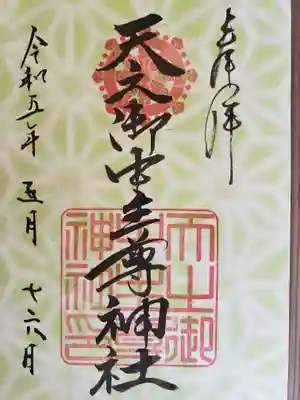 奉拝
天之御中主尊神社
令和五年 五月 十六日